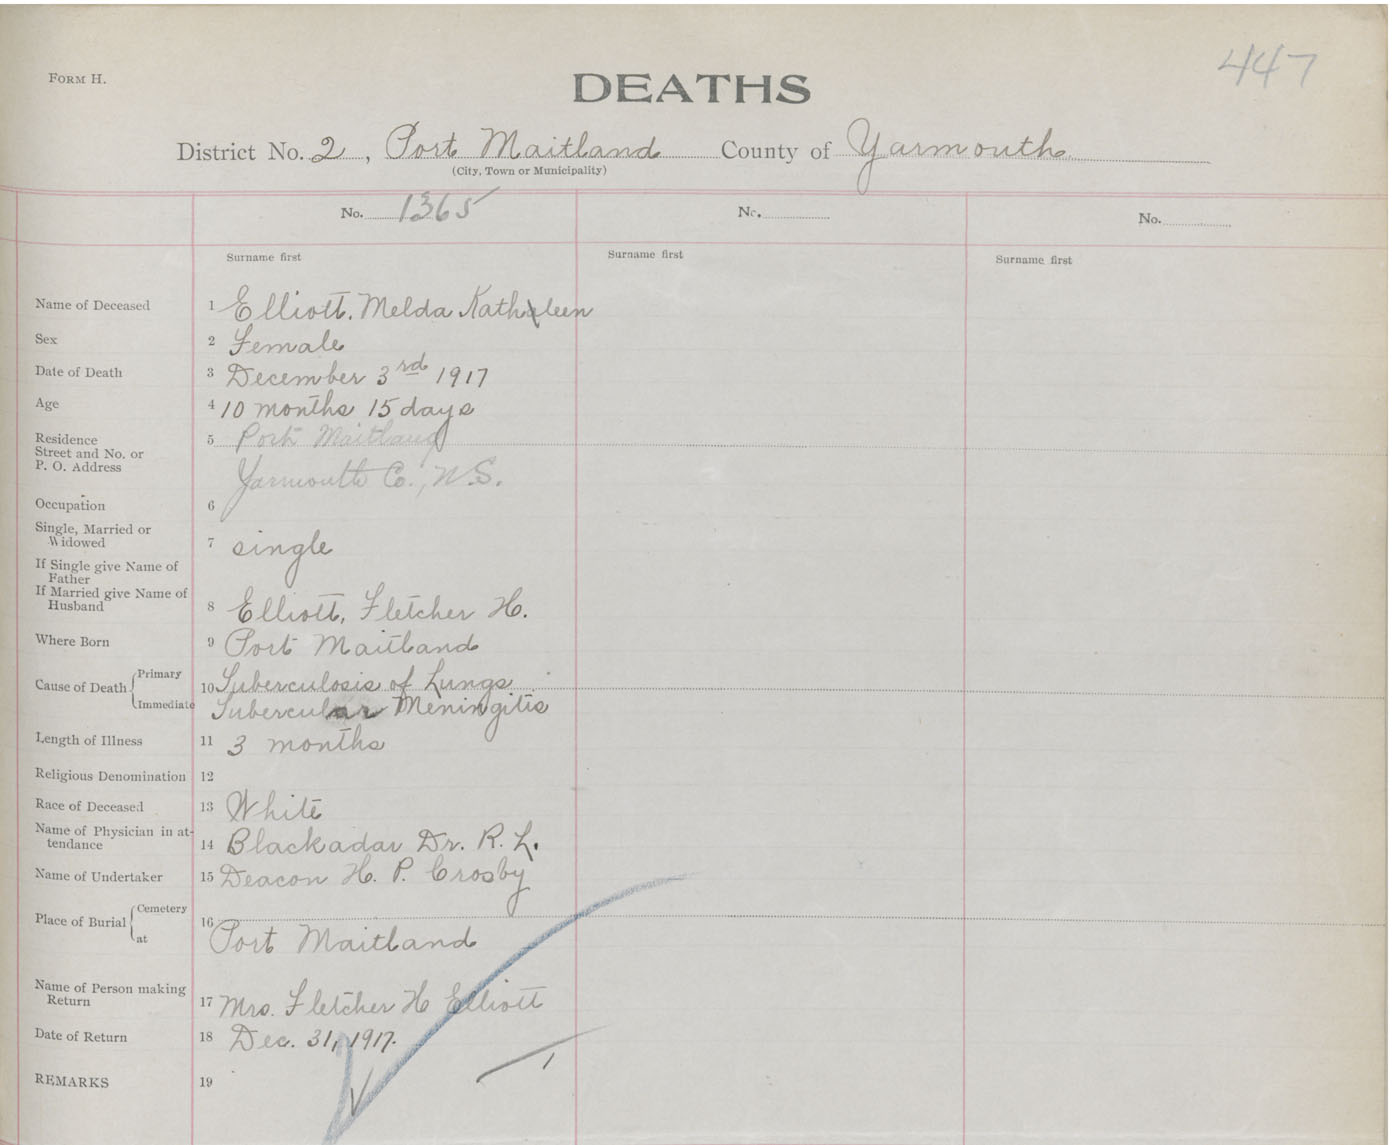 447
FORM H.
DEATHS
District No. 2, Port Maitland County of Yarmouth
(City, Town or Municipality)
No. 1365 No. No.
Surname first Surname first Surname first
Name of Deceased 1 Elliott, Melda Kathleen
Sex 2 Female
Date of Death 3 December 3rd 1917
Age 4 10 months 15 days
Residence 5 Port Maitland
Street and No. or
P. O. Address Yarmouth Co., N.S.
Occupation 6
Single, Married or
Widowed 7 single
If Single give Name of
Father
If Married give Name of
Husband 8 Elliott, Fletcher H.
Where Born 9 Port Maitland
Cause of Death Primary 10 Tuberculosis of Lungs
Immediate Tubercular Meningitis
Length of Illness 11 3 months
Religious Denomination 12
Race of Deceased 13 White
Name of Physician in at-
tendance 14 Blackadar Dr. R. L.
Name of Undertaker 15 Deacon H. P. Crosby
Place of Burial Cemetery 16
at Port Maitland
Name of Person making
Return 17 Mrs. Fletcher H Elliott
Date of Return 18 Dec. 31, 1917.
REMARKS 19